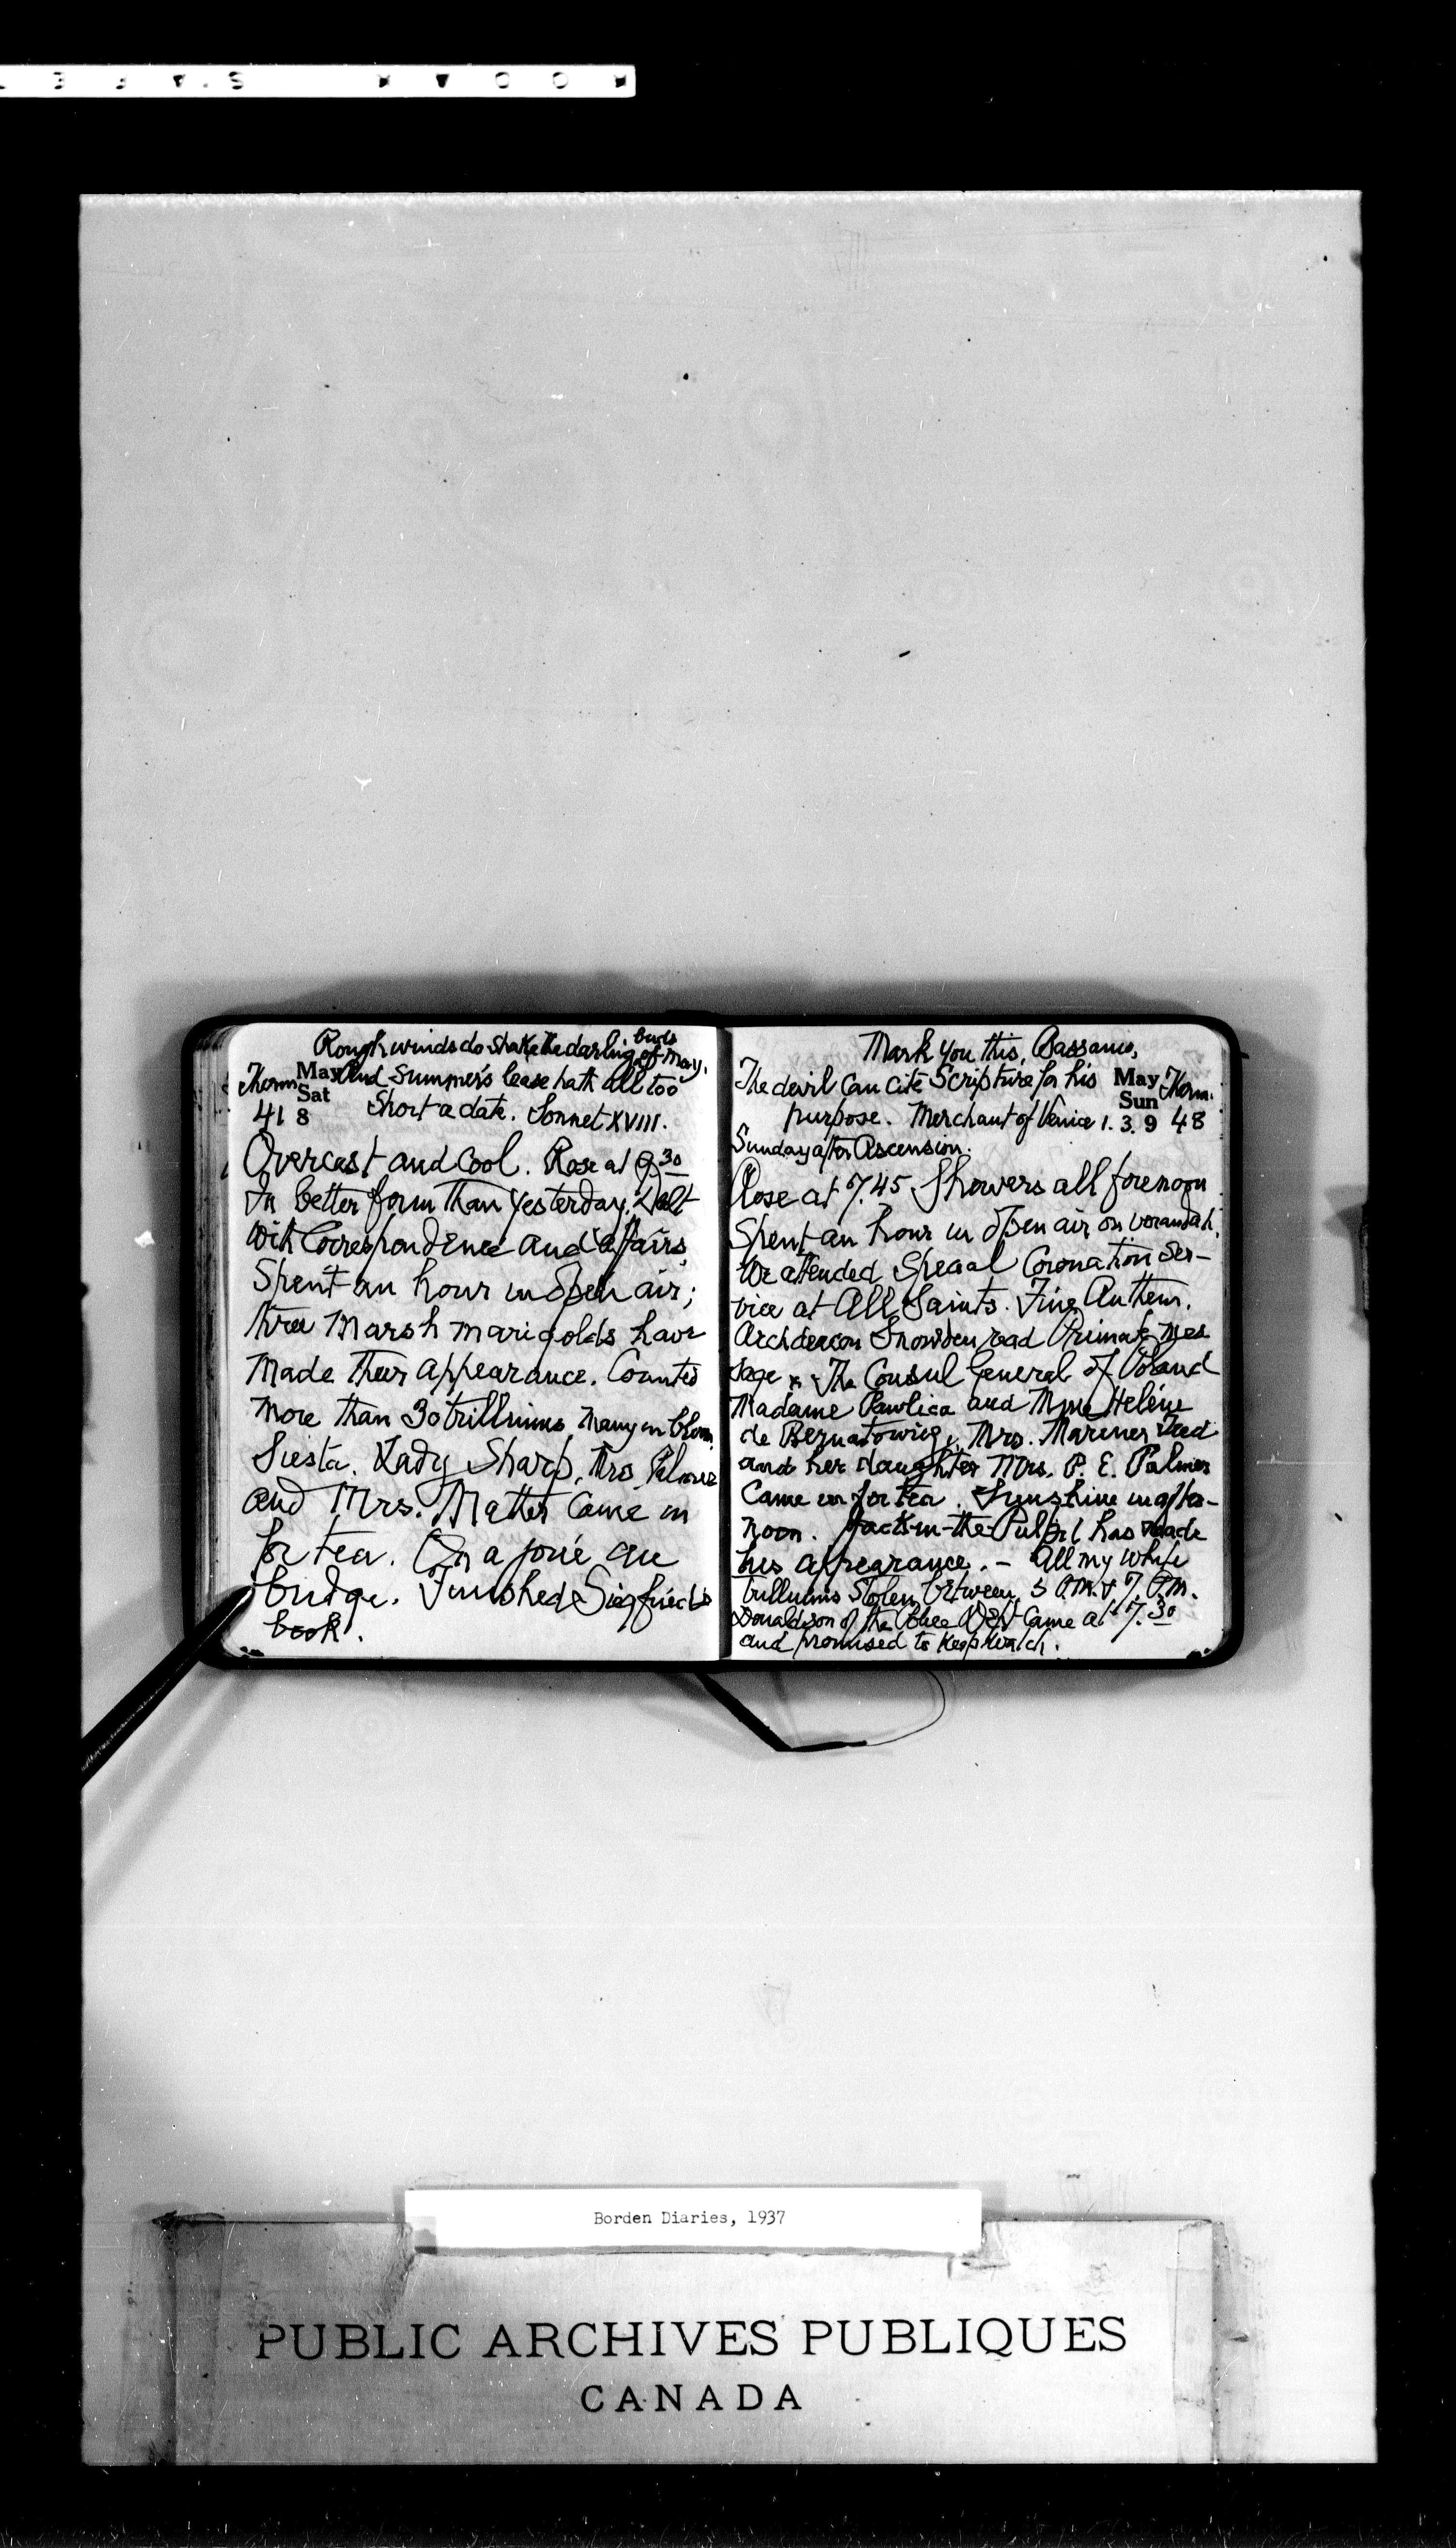 Rough winds do shake the darling buds of May,
Therm. May And Summer's lease hath all too
Sat
41 8 Short a date. Sonnet XVIII.
Overcast and Cool. Rose at 9.30
In better form than yesterday. Dealt
With Correspondence and affairs
Spent an hour in Open air;
three Marsh marigolds have
Made their appearance. Counted
more than 30 trilliums, many in bloom
Siesta. Lady Sharp, Mrs. Palmer
and Mrs. Mather Came in
for tea. On a joué au
bridge. Finished Siegfried's
book.
Mark you this, Bassanio,
The devil Can cite Scripture for his May Therm.
Sun
purpose. Merchant of Venice 1. 3. 9 48
Sunday after Ascension.
Rose at 7.45 Showers all forenoon
Spent an hour in Open air on verandah.
We attended Special Coronation Ser-
vice at All Saints. Fine Anthem.
Archdeacon Snowden read Primate's mes
sage x The Consul General of Poland
Madame Pawlica and Mme Helène
de Bernatowicz, Mrs. Mariner
and her daughter Mrs. P. E. Palmer
Came in for tea. Sunshine in after-
noon. Jack-in-the-Pulpit has made
his appearance. - All my white
trilliums Stolen between 5 P.M. & 7 P.M.
Donaldson of the Police Dept Came at 7.30
and promised to keep watch.
Borden Diaries, 1937
PUBLIC ARCHIVES PUBLIQUES
CANADA